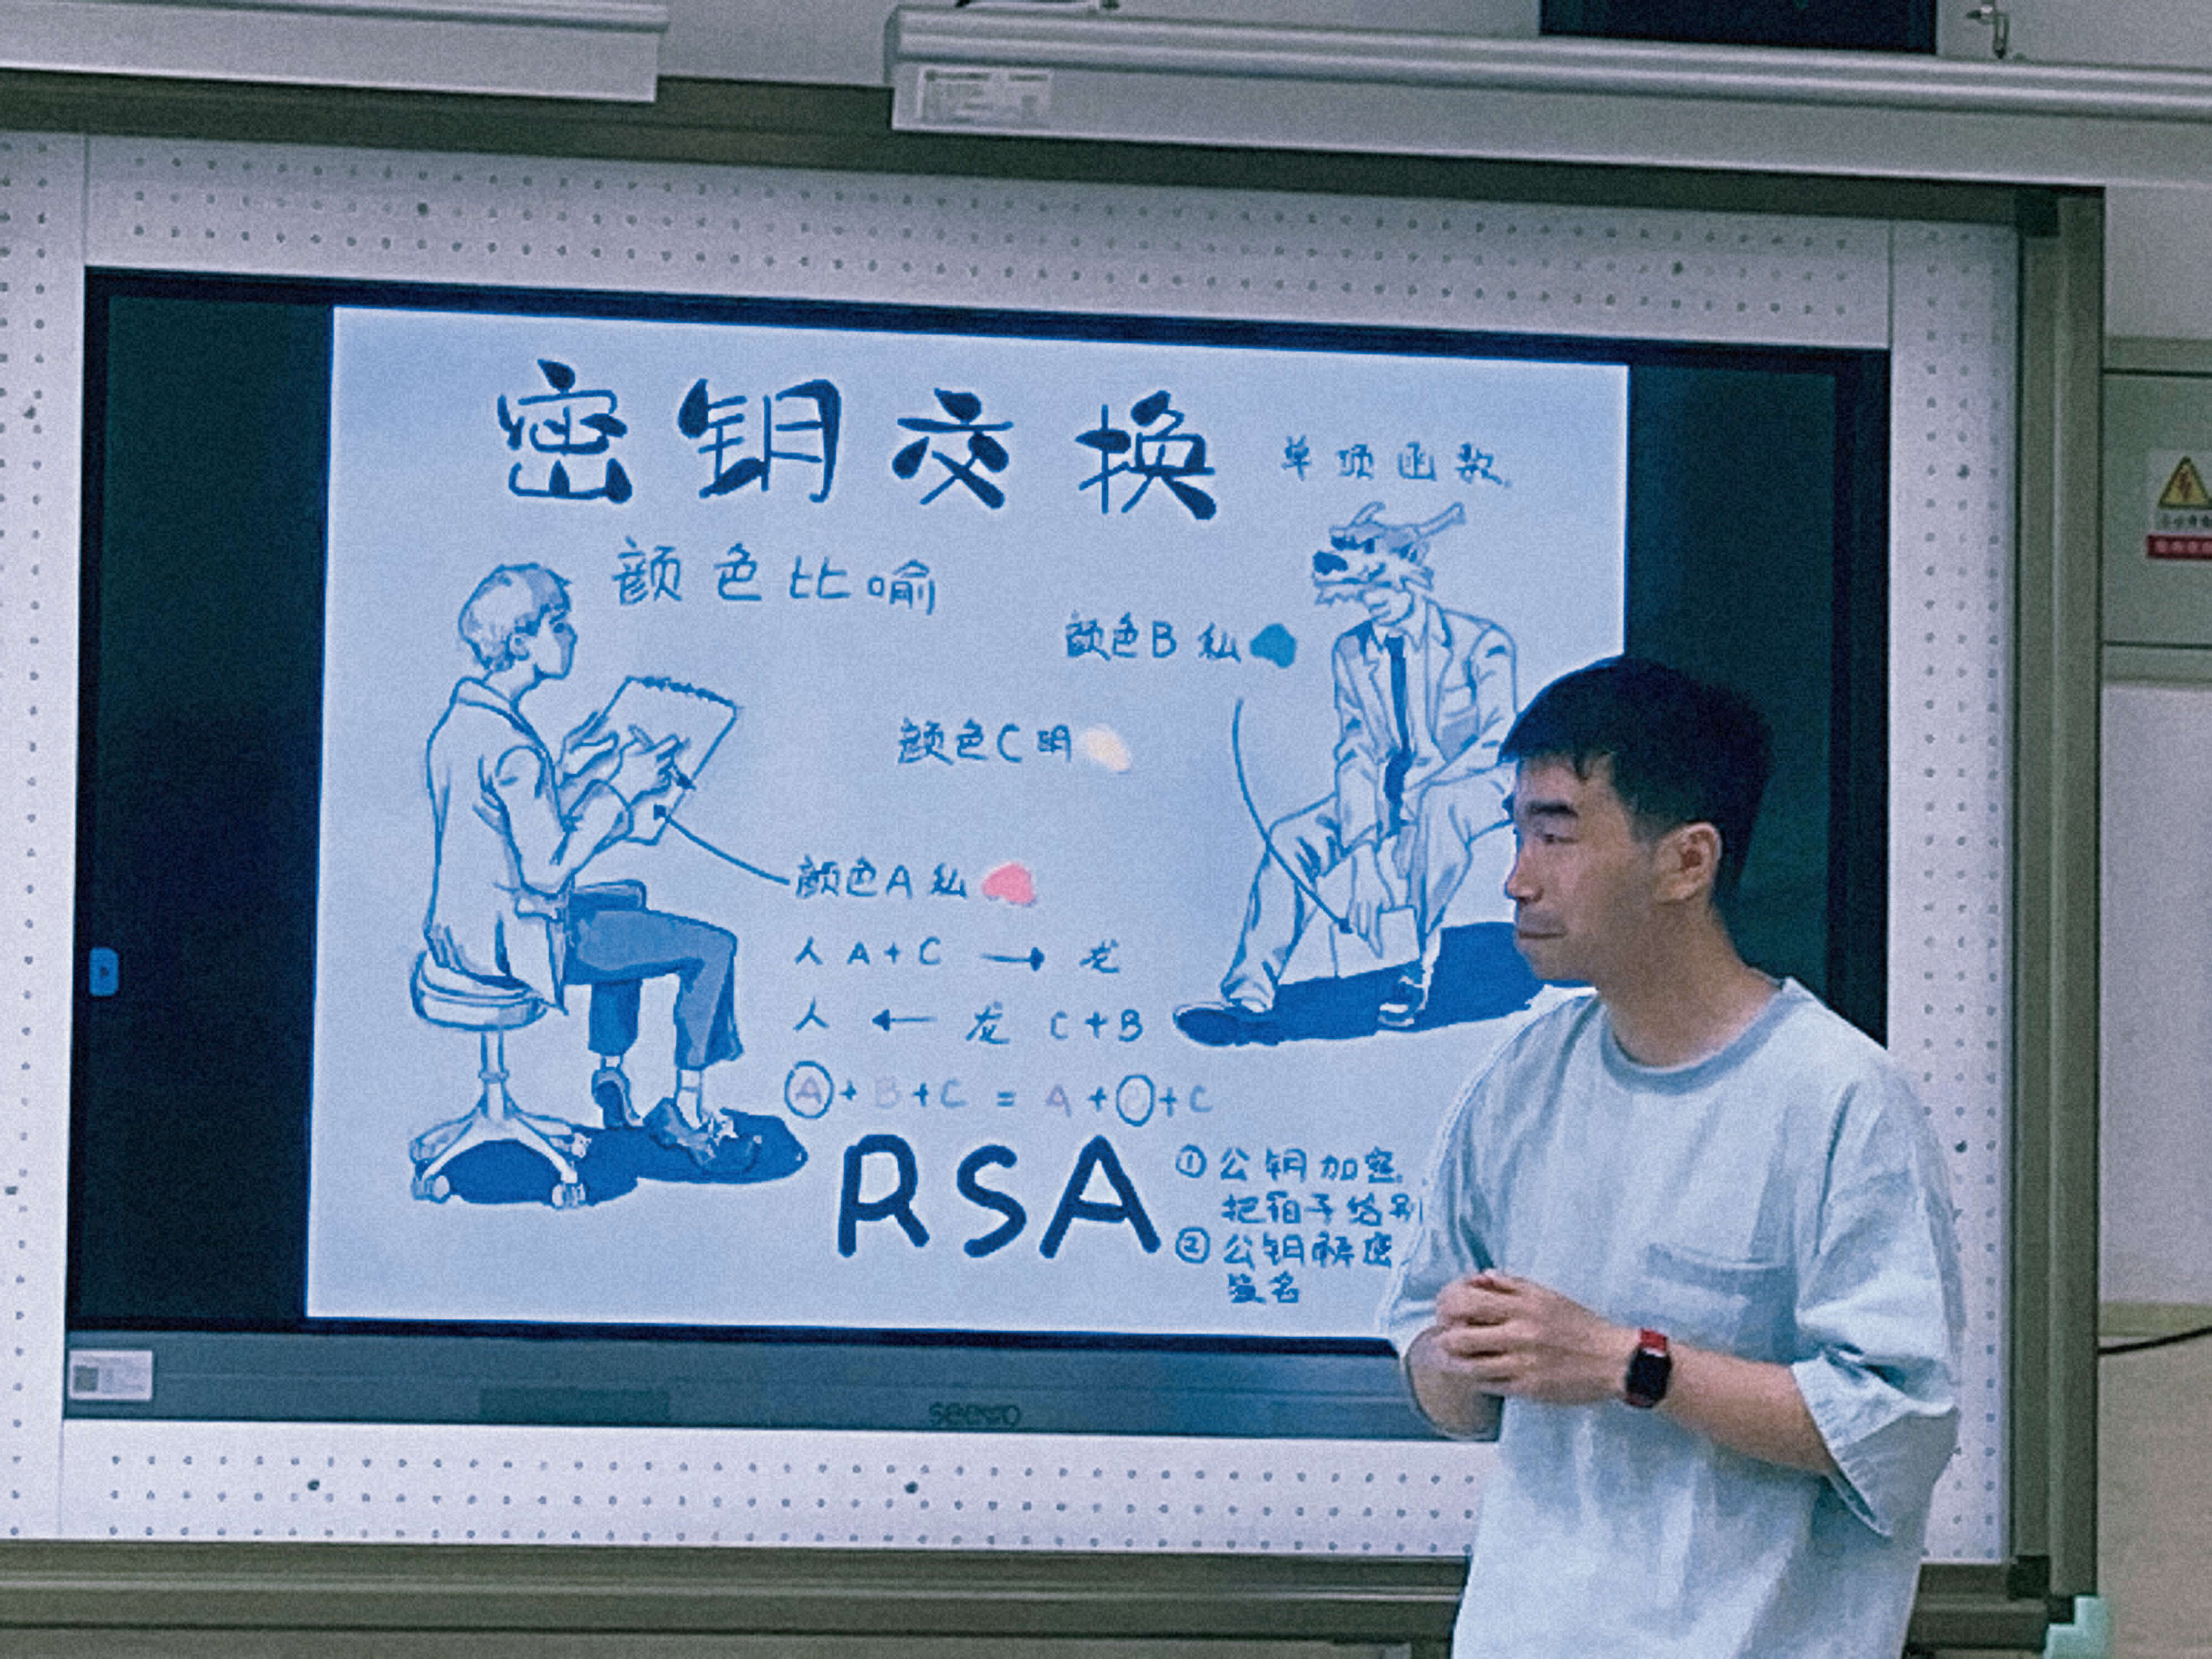 密钥交换
单项函数
颜色比喻
颜色B 私
颜色C 明
颜色A 私
人 A+C → 龙
人 ← 龙 C+B
A+B+C = A+ +C
RSA
① 公钥加密
把箱子给别
② 公钥解密
签名
seewo